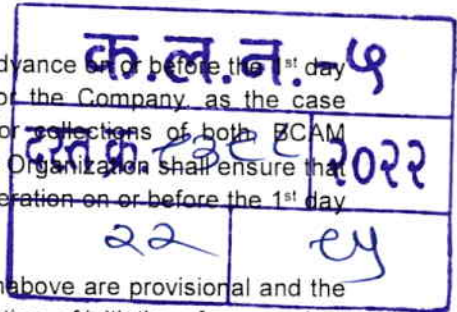 क.ल.न.-५
dvance on or before the 1st day
or the Company, as the case
or collections of both BCAM
दस्त क्र. २०२२
Organization shall ensure that
eration on or before the 1st day
२२
nabove are provisional and the